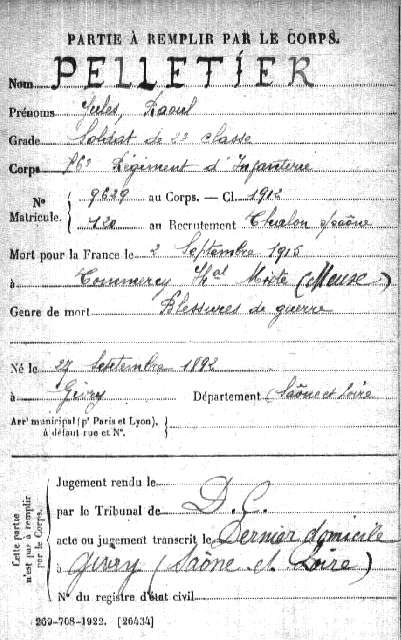 PARTIE À REMPLIR PAR LE CORPS.
Nom PELLETIER
Prénoms Jules, Raoul
Grade Soldat de 2e classe
Corps Régiment d'Infanterie
N° Matricule. 9629 au Corps. — Cl. 1912
120 au Recrutement Chalon s/Saône
Mort pour la France le 2 Septembre 1915
à Commercy Hal Mixte (Meuse)
Genre de mort Blessures de guerre
Né le 27 Septembre 1892
à Givry Département Saône et Loire
Arrt municipal (pr Paris et Lyon), à défaut rue et N°.
Cette partie n'est pas à remplir par le Corps.
Jugement rendu le
par le Tribunal de D.C.
acte ou jugement transcrit le Dernier domicile
à Givry (Saône et Loire)
N° du registre d'état civil
269-708-1922. [26434]